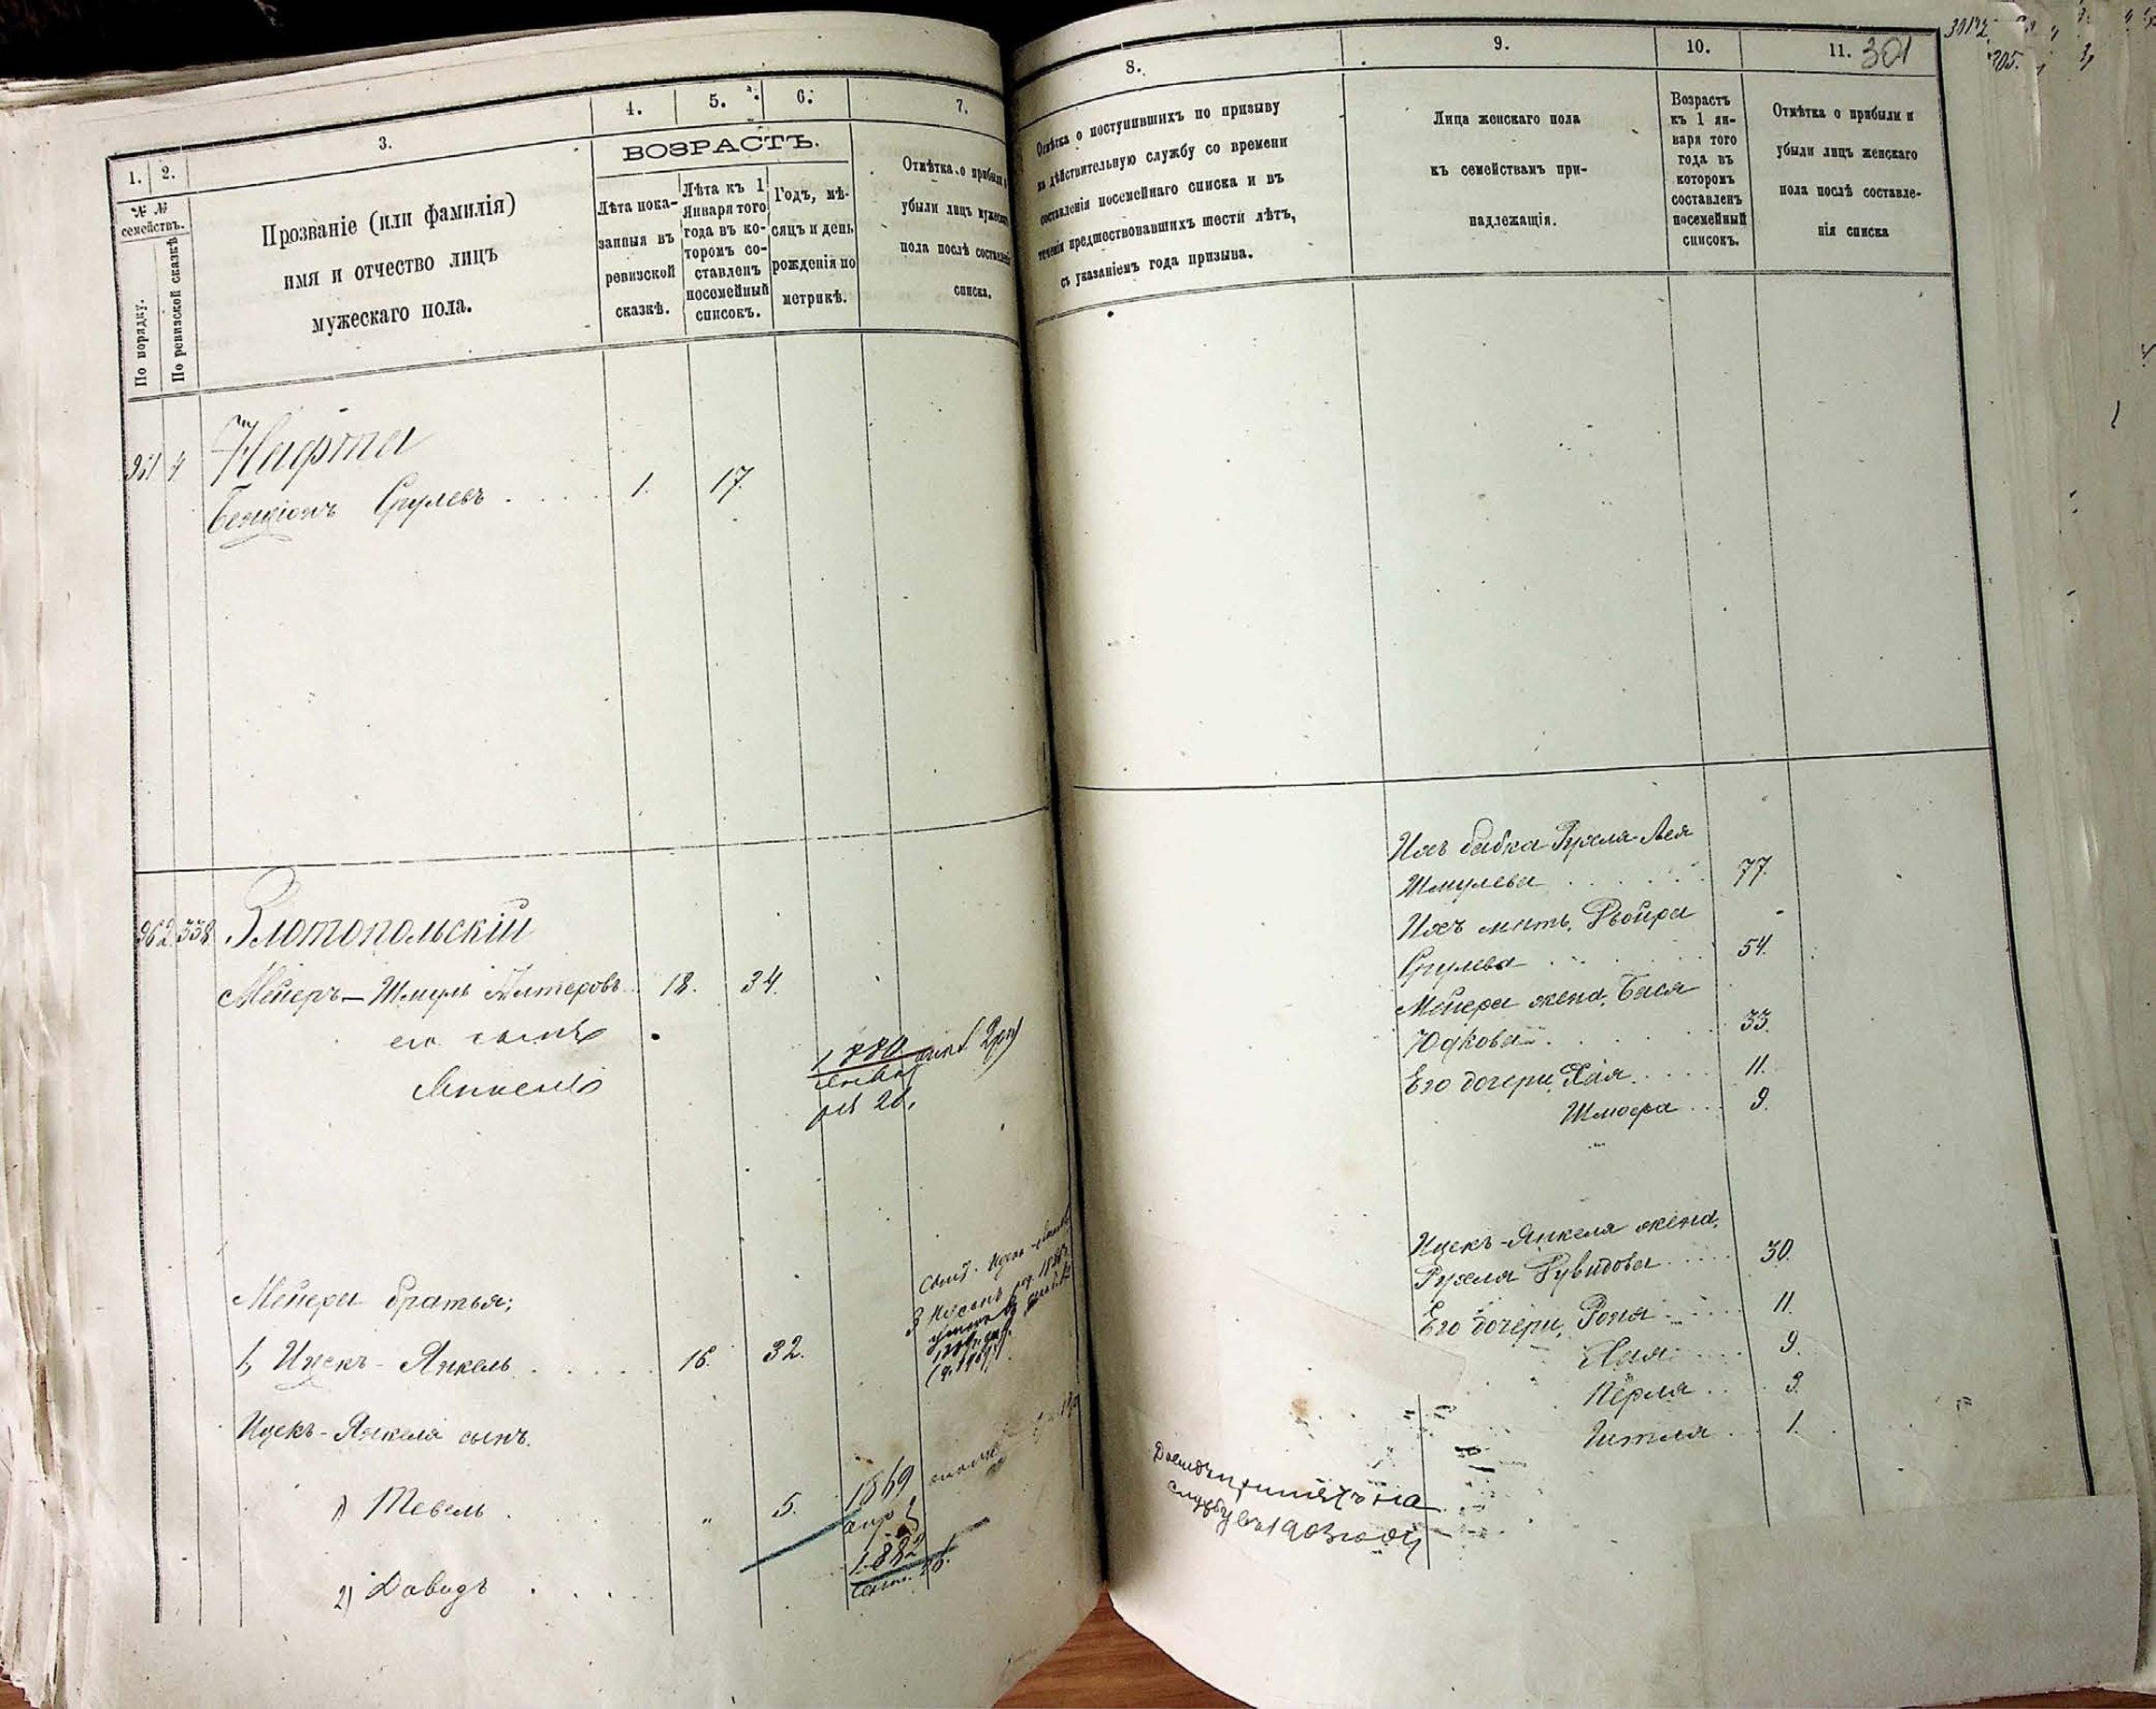 1.
2.
3.
4.
5.
6.
7.
№ №
семействъ.
По порядку.
По ревизской сказкѣ
Прозваніе (или фамилія)
имя и отчество лицъ
мужескаго пола.
ВОЗРАСТЪ.
Лѣта пока-
занныя въ
ревизской
сказкѣ.
Лѣта къ 1
Января того
года въ ко-
торомъ со-
ставленъ
посемейный
списокъ.
Годъ, мѣ-
сяцъ и день
рожденія по
метрикѣ.
Отмѣтка о прибыли и
убыли лицъ мужеска
пола послѣ составлені
списка.
Нафта
4
Бенціонъ Срулевъ 1. 17.
962. 338. Злотопольскій
Мейеръ-Шмуль Алтеровъ 18. 34.
его сынъ
1880
рія 20.
Мейера братья:
1, Ицекъ-Янкель 16. 32.
Ицекъ-Янкеля сынъ.
1) Тевель „ 5. 1869
1882
2) Давидъ
8.
9.
10.
11. 301
Отмѣтка о поступившихъ по призыву
на дѣйствительную службу со времени
составленія посемейнаго списка и въ
теченіи предшествовавшихъ шести лѣтъ,
съ указаніемъ года призыва.
Лица женскаго пола
къ семействамъ при-
надлежащія.
Возрастъ
къ 1 ян-
варя того
года въ
которомъ
составленъ
посемейный
списокъ.
Отмѣтка о прибыли и
убыли лицъ женскаго
пола послѣ составле-
нія списка
Ихъ бабка Рухля-Лея
Шмулева 77.
Ихъ мать, Двойра
Срулева 54.
Мейера жена, Бася
Юдкова 33.
Его дочери, Хая 11.
9.
Ицекъ-Янкеля жена,
Рухля Рувидова 30.
Его дочери, Роня 11.
Хая 9.
Перля 3.
Гитля 1.
Давидъ принятъ на
службу въ 1903 году